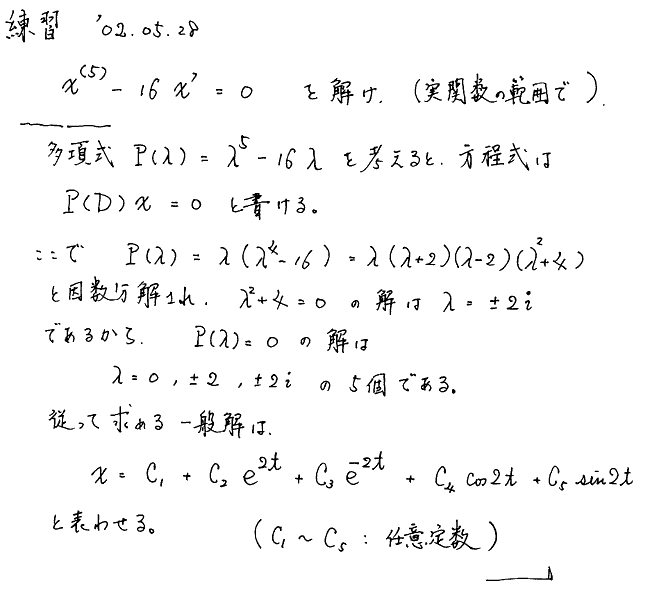 練習 '02.05.28
x^(5) - 16 x' = 0 を解け. (実関数の範囲で).
多項式 P(λ) = λ^5 - 16 λ を考えると. 方程式は
P(D) x = 0 と書ける。
ここで P(λ) = λ (λ^4 - 16) = λ (λ+2)(λ-2)(λ^2+4)
と因数分解され. λ^2+4 = 0 の解は λ = ±2i
であるから. P(λ) = 0 の解は
λ = 0 , ±2 , ±2i の 5個である。
従って求める一般解は.
x = C_1 + C_2 e^{2t} + C_3 e^{-2t} + C_4 cos2t + C_5 sin2t
と表わせる。 (C_1 ~ C_5 : 任意定数)